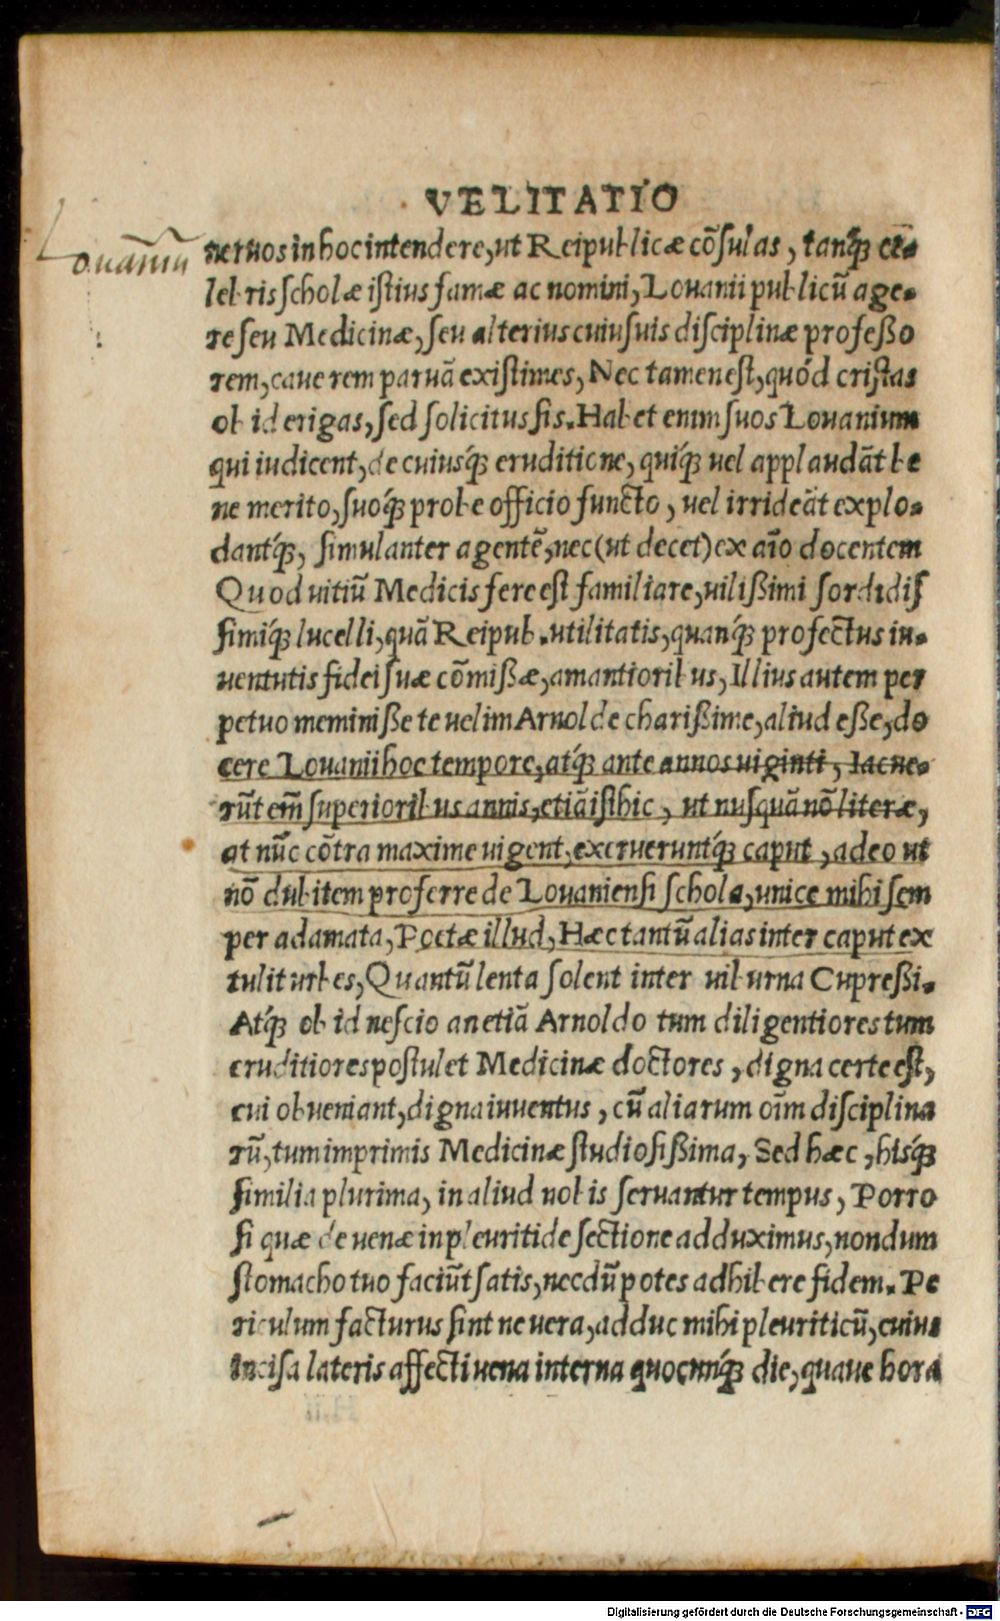 VELITATIO
Lovaniũ
neruos in hoc intendere, ut Reipublicæ cõsulas, tanq́ʒ ce-
lebris scholæ istius famæ ac nomini, Louanii publicũ age-
re seu Medicinæ, seu alterius cuiusuis disciplinæ profeßo
rem, caue rem paruã existimes, Nec tamen est, quód cristas
ob id erigas, sed solicitus sis. Habet enim suos Louanium
qui iudicent, de cuiusq́ʒ eruditione, quiq́ʒ uel applaudãt be
ne merito, suoq́ʒ probe officio functo, uel irrideãt explo-
dantq́ʒ, simulanter agentẽ, nec (ut decet) ex aĩo docentem
Quod uitiũ Medicis fere est familiare, uilißimi sordidis
simiq́ʒ lucelli, quã Reipub. utilitatis, quanq́ʒ profectus iu-
uentutis fidei suæ cõmißæ, amantioribus, Illius autem per
petuo meminiße te uelim Arnolde charißime, aliud eße, do
cere Louanii hoc tempore, atq́ʒ ante annos uiginti, Iacue-
rũt em̃ superioribus annis, etiã isthic, ut nusquã nõ literæ,
at nũc cõtra maxime uigent, exerueruntq́ʒ caput, adeo ut
nõ dubitem proferre de Louaniensi schola, unice mihi sem
per adamata, Poetæ illud, Hæc tantũ alias inter caput ex
tulit urbes, Quantũ lenta solent inter uiburna Cupreßi.
Atq́ʒ ob id nescio an etiã Arnoldo tum diligentiores tum
eruditiores postulet Medicinæ doctores, digna certe est,
cui obueniant, digna iuuentus, cũ aliarum oĩm disciplina
rũ, tum imprimis Medicinæ studiosißima, Sed hæc, hisq́ʒ
similia plurima, in aliud nobis seruantur tempus, Porro
si quæ de uenæ in pleuritide sectione adduximus, nondum
stomacho tuo faciũt satis, necdũ potes adhibere fidem. Pe
riculum facturus sint ne uera, adduc mihi pleuriticũ, cuius
incisa lateris affecti uena interna quocunq́ʒ die, quaue hora
Digitalisierung gefördert durch die Deutsche Forschungsgemeinschaft - DFG